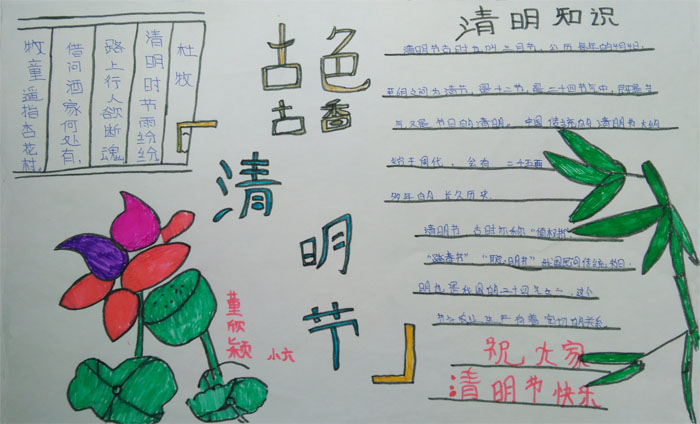 杜牧
清明时节雨纷纷
路上行人欲断魂
借问酒家何处有,
牧童遥指杏花村。
古色
古香
清
明
节
董欣颖 小六
清明知识
清明节古时也叫三月节,公历每年的4月4日
五日之间为清节,是二十四节气中
节日的清明。中国传统的清明节大约
始于周代,
多年的长久历史
清明节 古时
“踏青节” “聪明节” 我国民间传统节日
明也是我国的二十四气之一,这个
有着密切的关系
祝大家
清明节快乐